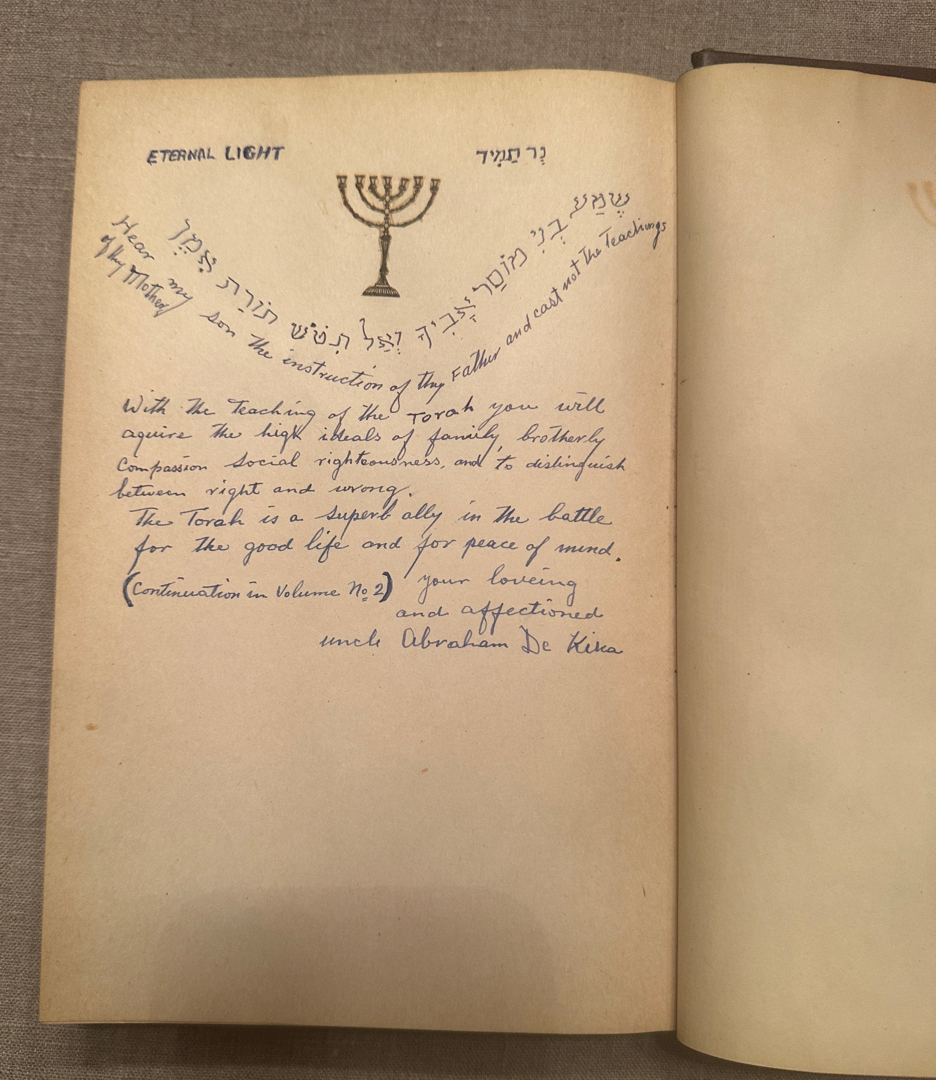 ETERNAL LIGHT
נֵר תַּמִיד
שְׁמַע בְּנִי מוּסַר אָבִיךָ וְאַל תִּטֹּשׁ תּוֹרַת אִמֶּךָ
Hear my son the instruction of thy Father and cast not the Teachings
of thy Mother
With the Teaching of the Torah you will
aquire the high ideals of family, brotherly
compassion social righteousness, and to distinguish
between right and wrong.
The Torah is a superb ally in the battle
for the good life and for peace of mind.
(Continuation in Volume No 2) your loveing
and affectioned
uncle Abraham De